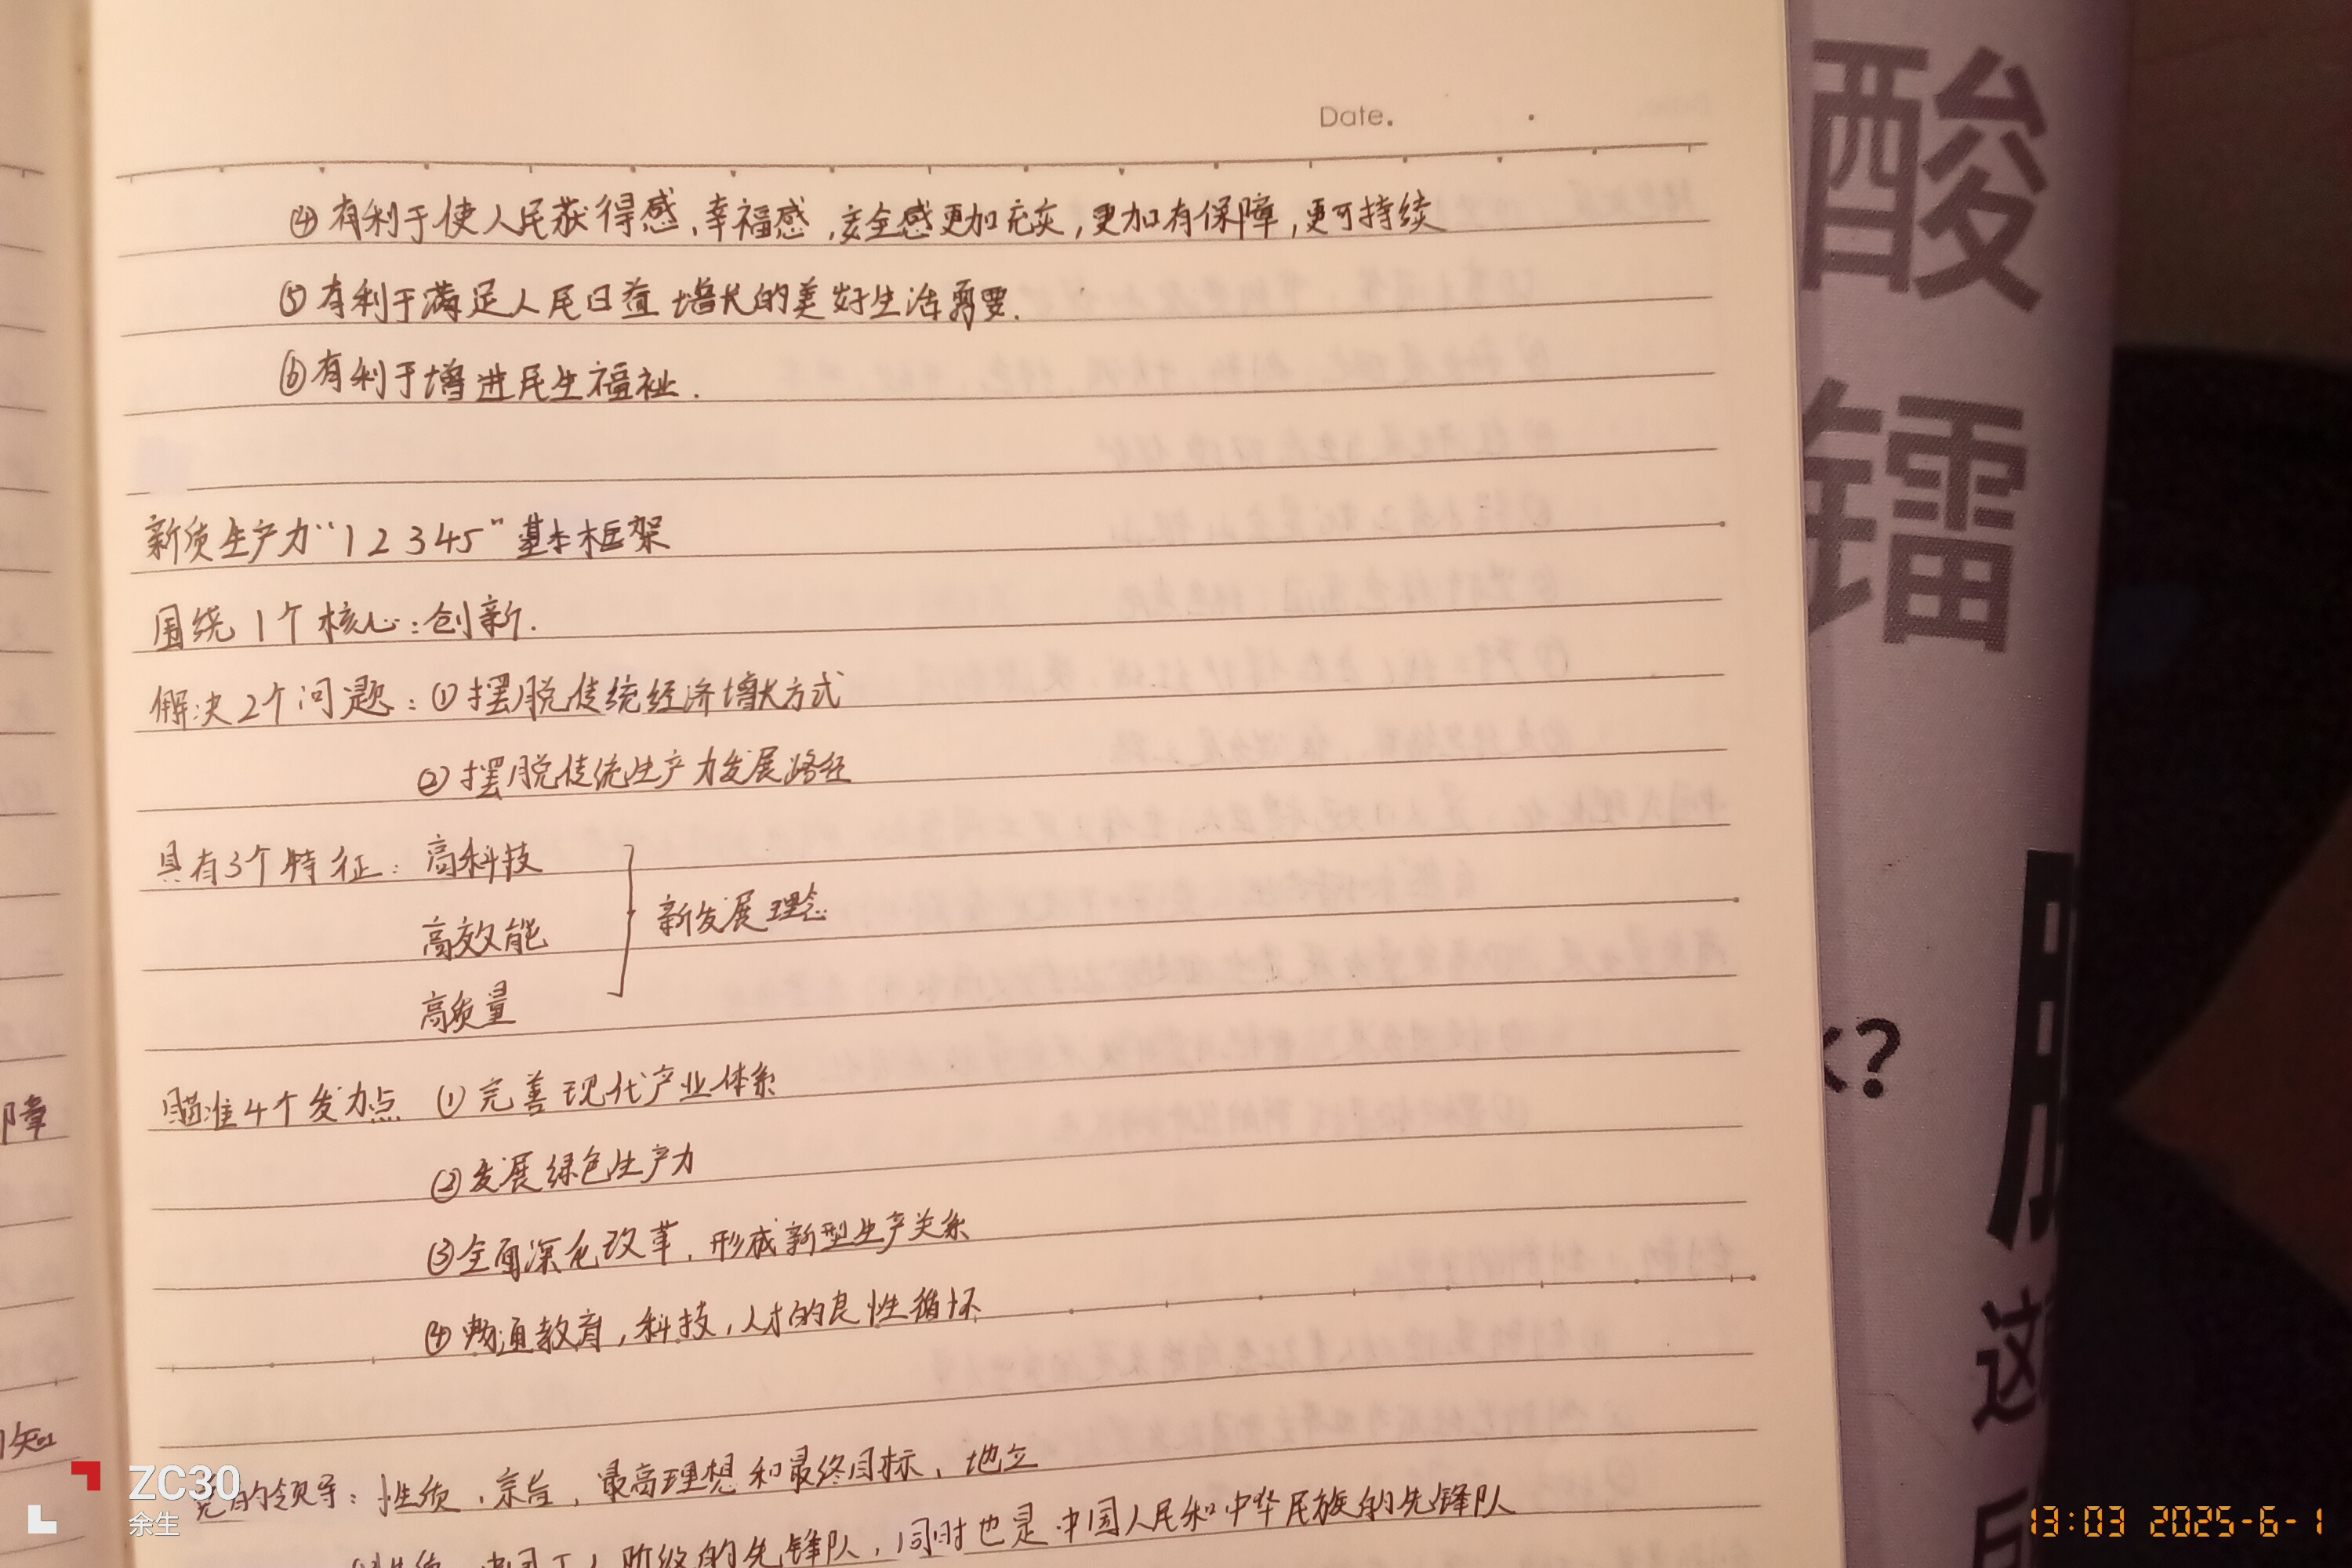 Date.
④有利于使人民获得感、幸福感,安全感更加充实,更加有保障,更可持续
⑤有利于满足人民日益增长的美好生活需要.
⑥有利于增进民生福祉.
新质生产力“12345”基本框架
围绕1个核心:创新.
解决2个问题:①摆脱传统经济增长方式
②摆脱传统生产力发展路径
具有3个特征:高科技
高效能
新发展理念
高质量
瞄准4个发力点 ①完善现代产业体系
②发展绿色生产力
③全面深化改革,形成新型生产关系
④畅通教育,科技,人才的良性循环
党的领导:性质、宗旨,最高理想和最终目标,地位
阶级的先锋队,同时也是中国人民和中华民族的先锋队
障
知
酸
镭
?
这
ZC30
余生
13:03 2025-6-1